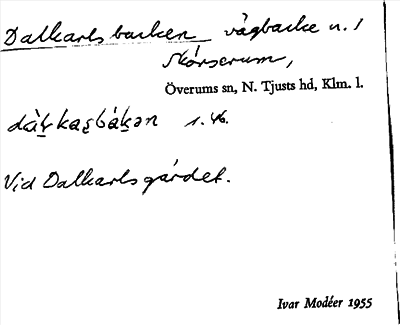 Dalkarlsbacken vägbacke u. /
Skörserum,
Överums sn, N. Tjusts hd, Klm. l.
1.46.
Vid Dalkarlsgärdet.
Ivar Modéer 1955